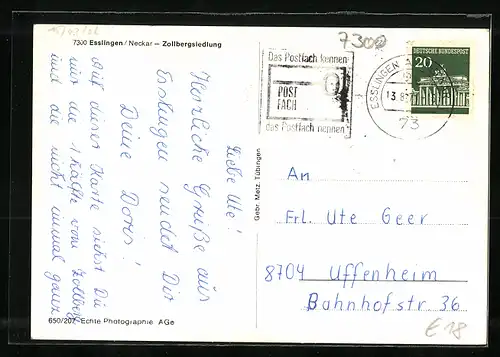 7300 Esslingen / Neckar — Zollbergsiedlung
Liebe Ute!
Herzliche Grüße aus
Esslingen sendet Dir
Deine Doris!
Auf dieser Karte siehst Du
nur die Hälfte vom Zollberg
und die nicht einmal ganz.
650/207 Echte Photographie AGe
Gebr. Metz, Tübingen
7300
Das Postfach kennen
POST
FACH
das Postfach nennen
ESSLINGEN
13.8.
73
DEUTSCHE BUNDESPOST
20
An
Frl. Ute Geer
8704 Uffenheim
Bahnhofstr. 36
€18